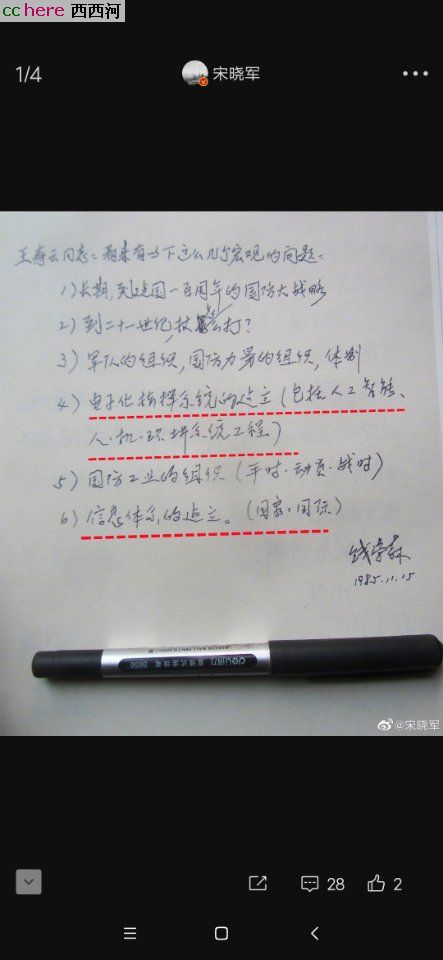 cchere 西西河
1/4
宋晓军
王寿云同志：看来有以下这么几个宏观的问题：
1）长期，到建国一百周年的国防大战略
2）到二十一世纪，仗怎么打？
3）军队的组织，国防力量的组织，体制
4）电子化指挥系统的建立（包括人工智能、
人·机·环境系统工程）
5）国防工业的组织（平时·动员·战时）
6）信息体系的建立。（国家，国际）
钱学森
1985.11.15
deli得力
S656
@宋晓军
28
2